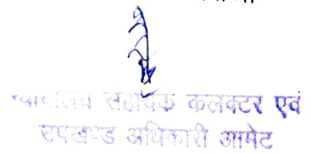 न्यायालय सहायक कलक्टर एवं
उपखण्ड अधिकारी आमेट